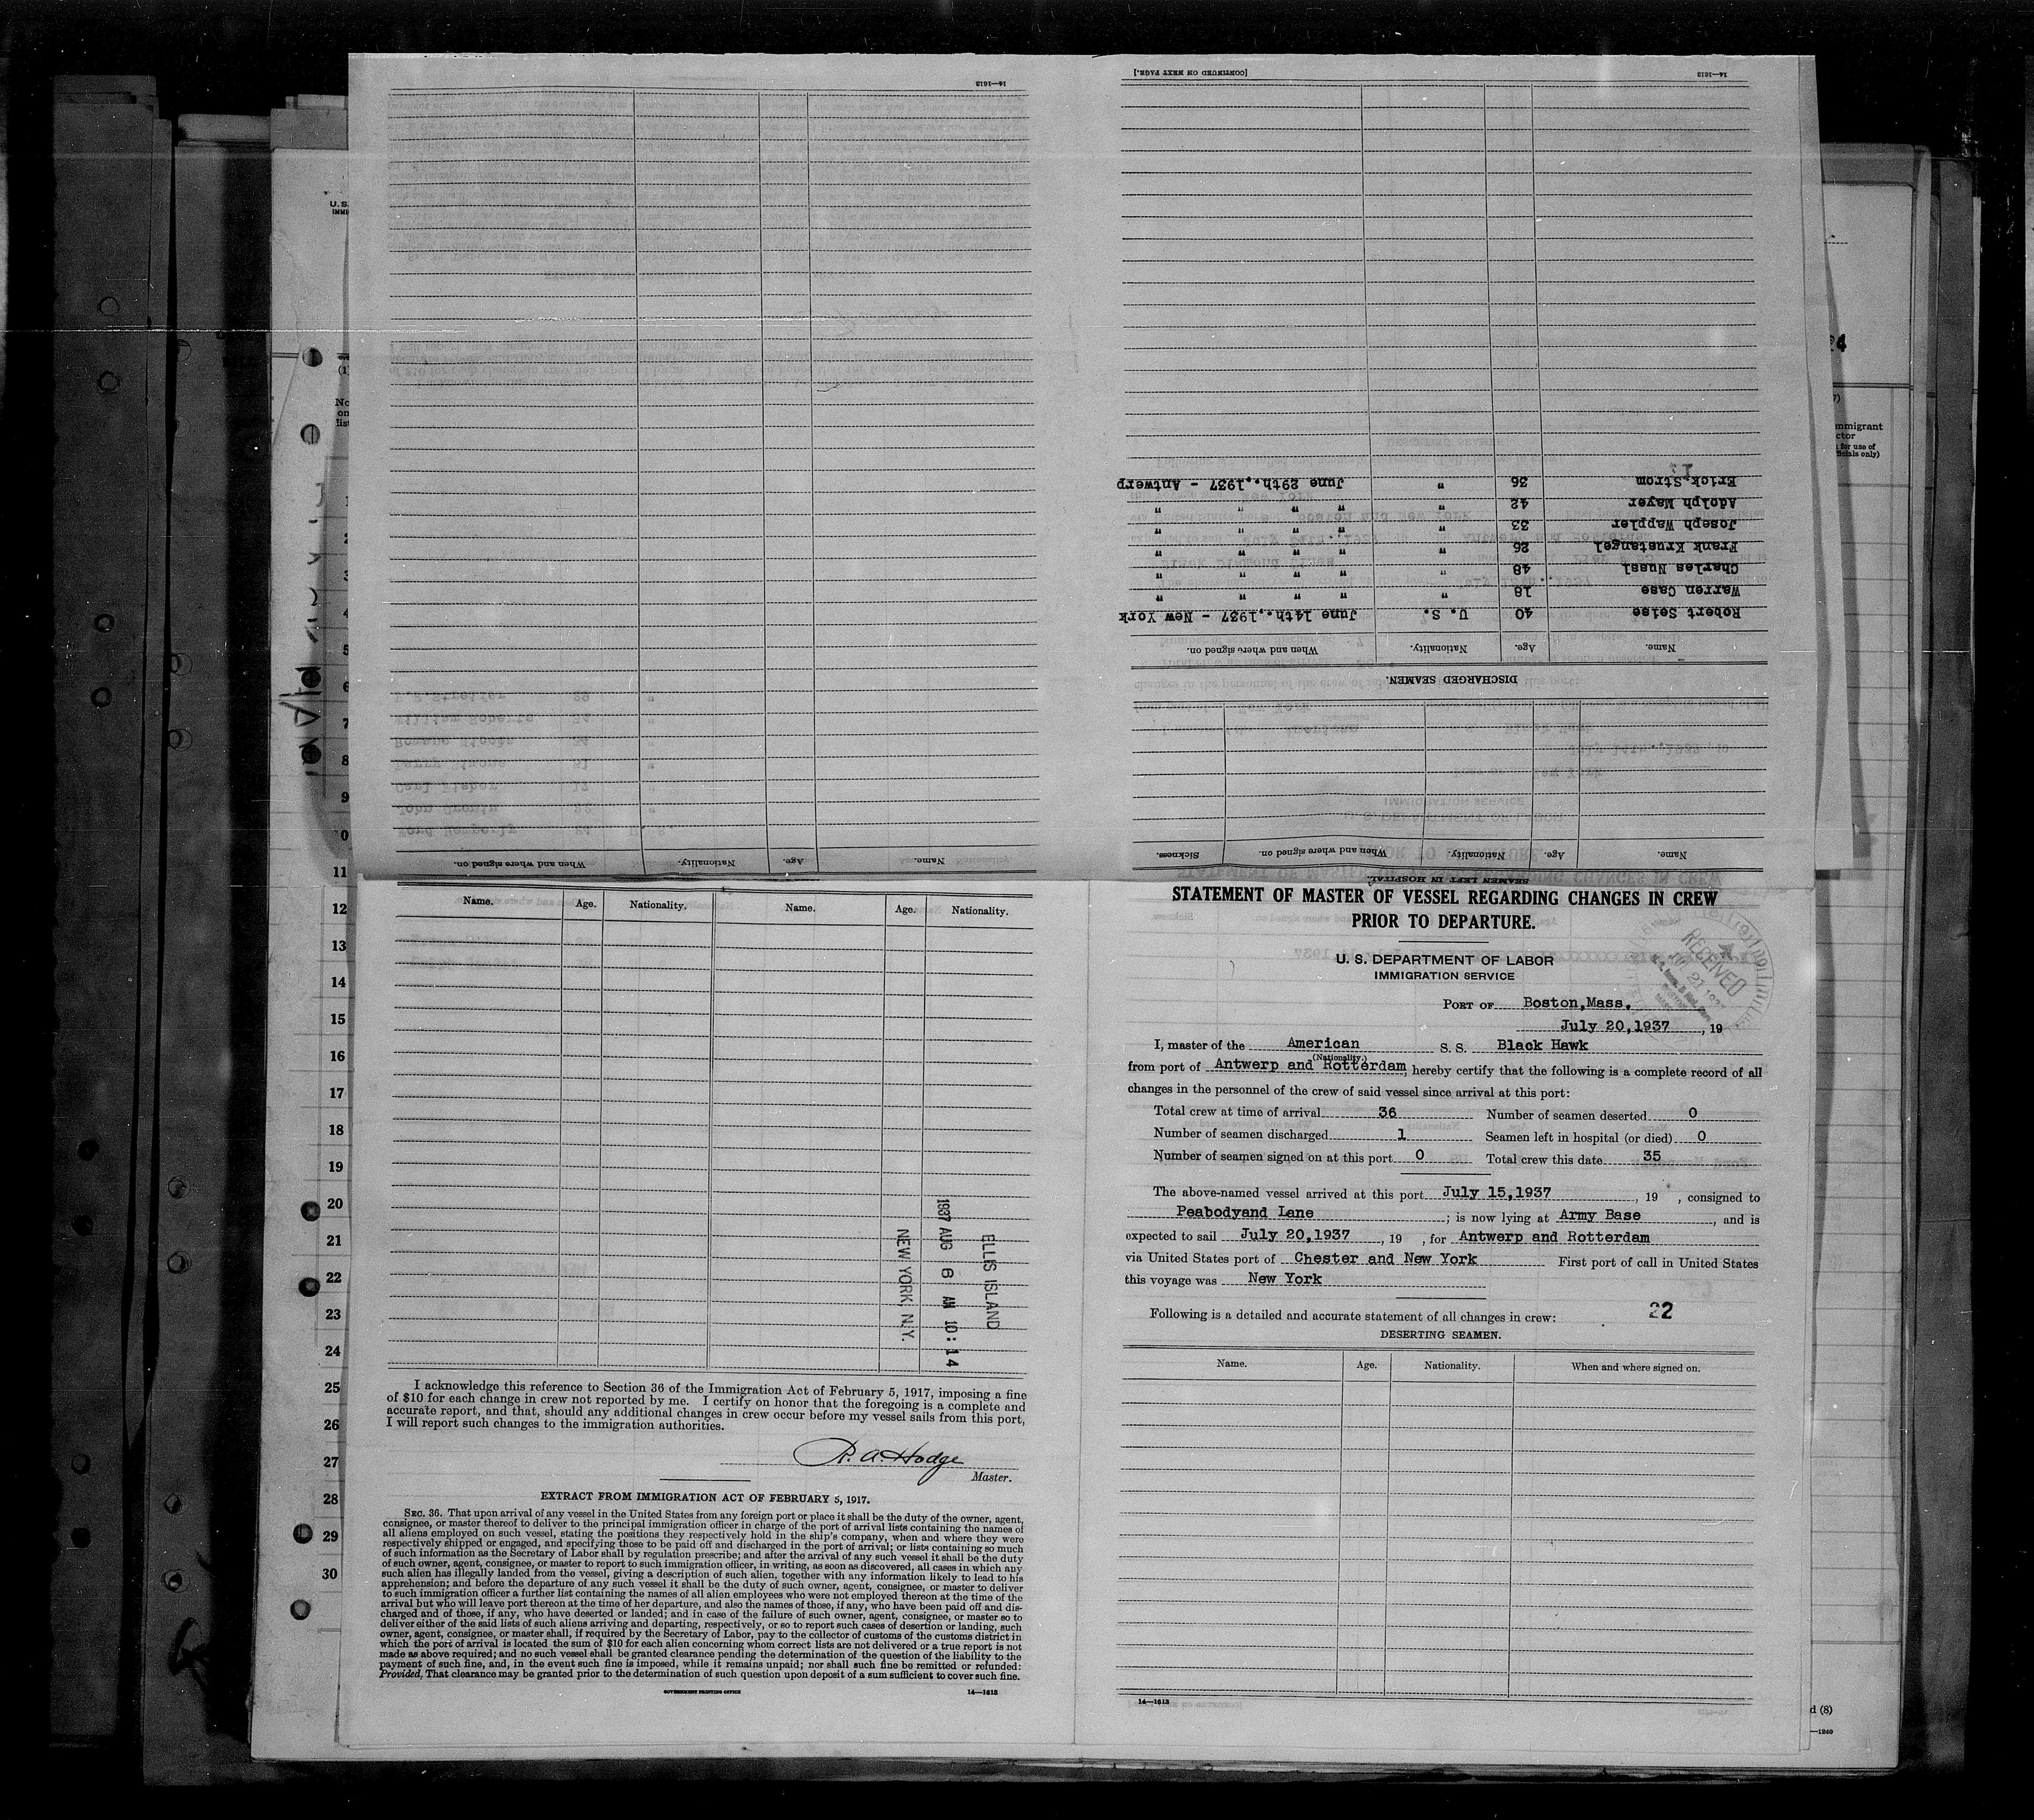 STATEMENT OF MASTER OF VESSEL REGARDING CHANGES IN CREW
PRIOR TO DEPARTURE.
U. S. DEPARTMENT OF LABOR
IMMIGRATION SERVICE
RECEIVED
PORT OF Boston,Mass.
July 20,1937, 19
I, master of the American S. S. Black Hawk
(Nationality.)
from port of Antwerp and Rotterdam, hereby certify that the following is a complete record of all
changes in the personnel of the crew of said vessel since arrival at this port:
Total crew at time of arrival 36 Number of seamen deserted 0
Number of seamen discharged 1 Seamen left in hospital (or died) 0
Number of seamen signed on at this port 0 Total crew this date 35
The above-named vessel arrived at this port July 15,1937, 19 , consigned to
Peabodyand Lane; is now lying at Army Base, and is
expected to sail July 20,1937, 19 , for Antwerp and Rotterdam
via United States port of Chester and New York First port of call in United States
this voyage was New York
Following is a detailed and accurate statement of all changes in crew: 22
DESERTING SEAMEN.
Name. Age. Nationality. When and where signed on.
14—1613
SEAMEN LEFT IN HOSPITAL.
Name. Age. Nationality. When and where signed on. Sickness.
DISCHARGED SEAMEN.
Name. Age. Nationality. When and where signed on.
Robert Seise 40 U. S. June 14th.,1937 - New York
Warren Case 18 " " " " "
Charles Nussl 48 " " " " "
Frank Krustangel 26 " " " " "
Joseph Wappler 33 " " " " "
Adolph Mayer 42 " " " " "
Erick Strom 36 " June 29th.,1937 - Antwerp
14—1613 [CONTINUED ON NEXT PAGE.]
Name. Age. Nationality. When and where signed on.
14—1613
Name. Age. Nationality. Name. Age. Nationality.
ELLIS ISLAND
1937 AUG 6 AM 10:14
NEW YORK, N.Y.
I acknowledge this reference to Section 36 of the Immigration Act of February 5, 1917, imposing a fine
of $10 for each change in crew not reported by me. I certify on honor that the foregoing is a complete and
accurate report, and that, should any additional changes in crew occur before my vessel sails from this port,
I will report such changes to the immigration authorities.
R. A. Hodge
Master.
EXTRACT FROM IMMIGRATION ACT OF FEBRUARY 5, 1917.
SEC. 36. That upon arrival of any vessel in the United States from any foreign port or place it shall be the duty of the owner, agent,
consignee, or master thereof to deliver to the principal immigration officer in charge of the port of arrival lists containing the names of
all aliens employed on such vessel, stating the positions they respectively hold in the ship's company, when and where they were
respectively shipped or engaged, and specifying those to be paid off and discharged in the port of arrival; or lists containing so much
of such information as the Secretary of Labor shall by regulation prescribe; and after the arrival of any such vessel it shall be the duty
of such owner, agent, consignee, or master to report to such immigration officer, in writing, as soon as discovered, all cases in which any
such alien has illegally landed from the vessel, giving a description of such alien, together with any information likely to lead to his
apprehension; and before the departure of any such vessel it shall be the duty of such owner, agent, consignee, or master to deliver
to such immigration officer a further list containing the names of all alien employees who were not employed thereon at the time of the
arrival but who will leave port thereon at the time of her departure, and also the names of those, if any, who have been paid off and dis-
charged and of those, if any, who have deserted or landed; and in case of the failure of such owner, agent, consignee, or master so to
deliver either of the said lists of such aliens arriving and departing, respectively, or so to report such cases of desertion or landing, such
owner, agent, consignee, or master shall, if required by the Secretary of Labor, pay to the collector of customs of the customs district in
which the port of arrival is located the sum of $10 for each alien concerning whom correct lists are not delivered or a true report is not
made as above required; and no such vessel shall be granted clearance pending the determination of the question of the liability to the
payment of such fine, and, in the event such fine is imposed, while it remains unpaid; nor shall such fine be remitted or refunded:
Provided, That clearance may be granted prior to the determination of such question upon deposit of a sum sufficient to cover such fine.
GOVERNMENT PRINTING OFFICE 14—1613
1
2
3
4
5
6
7
8
9
10
11
12
13
14
15
16
17
18
19
20
21
22
23
24
25
26
27
28
29
30